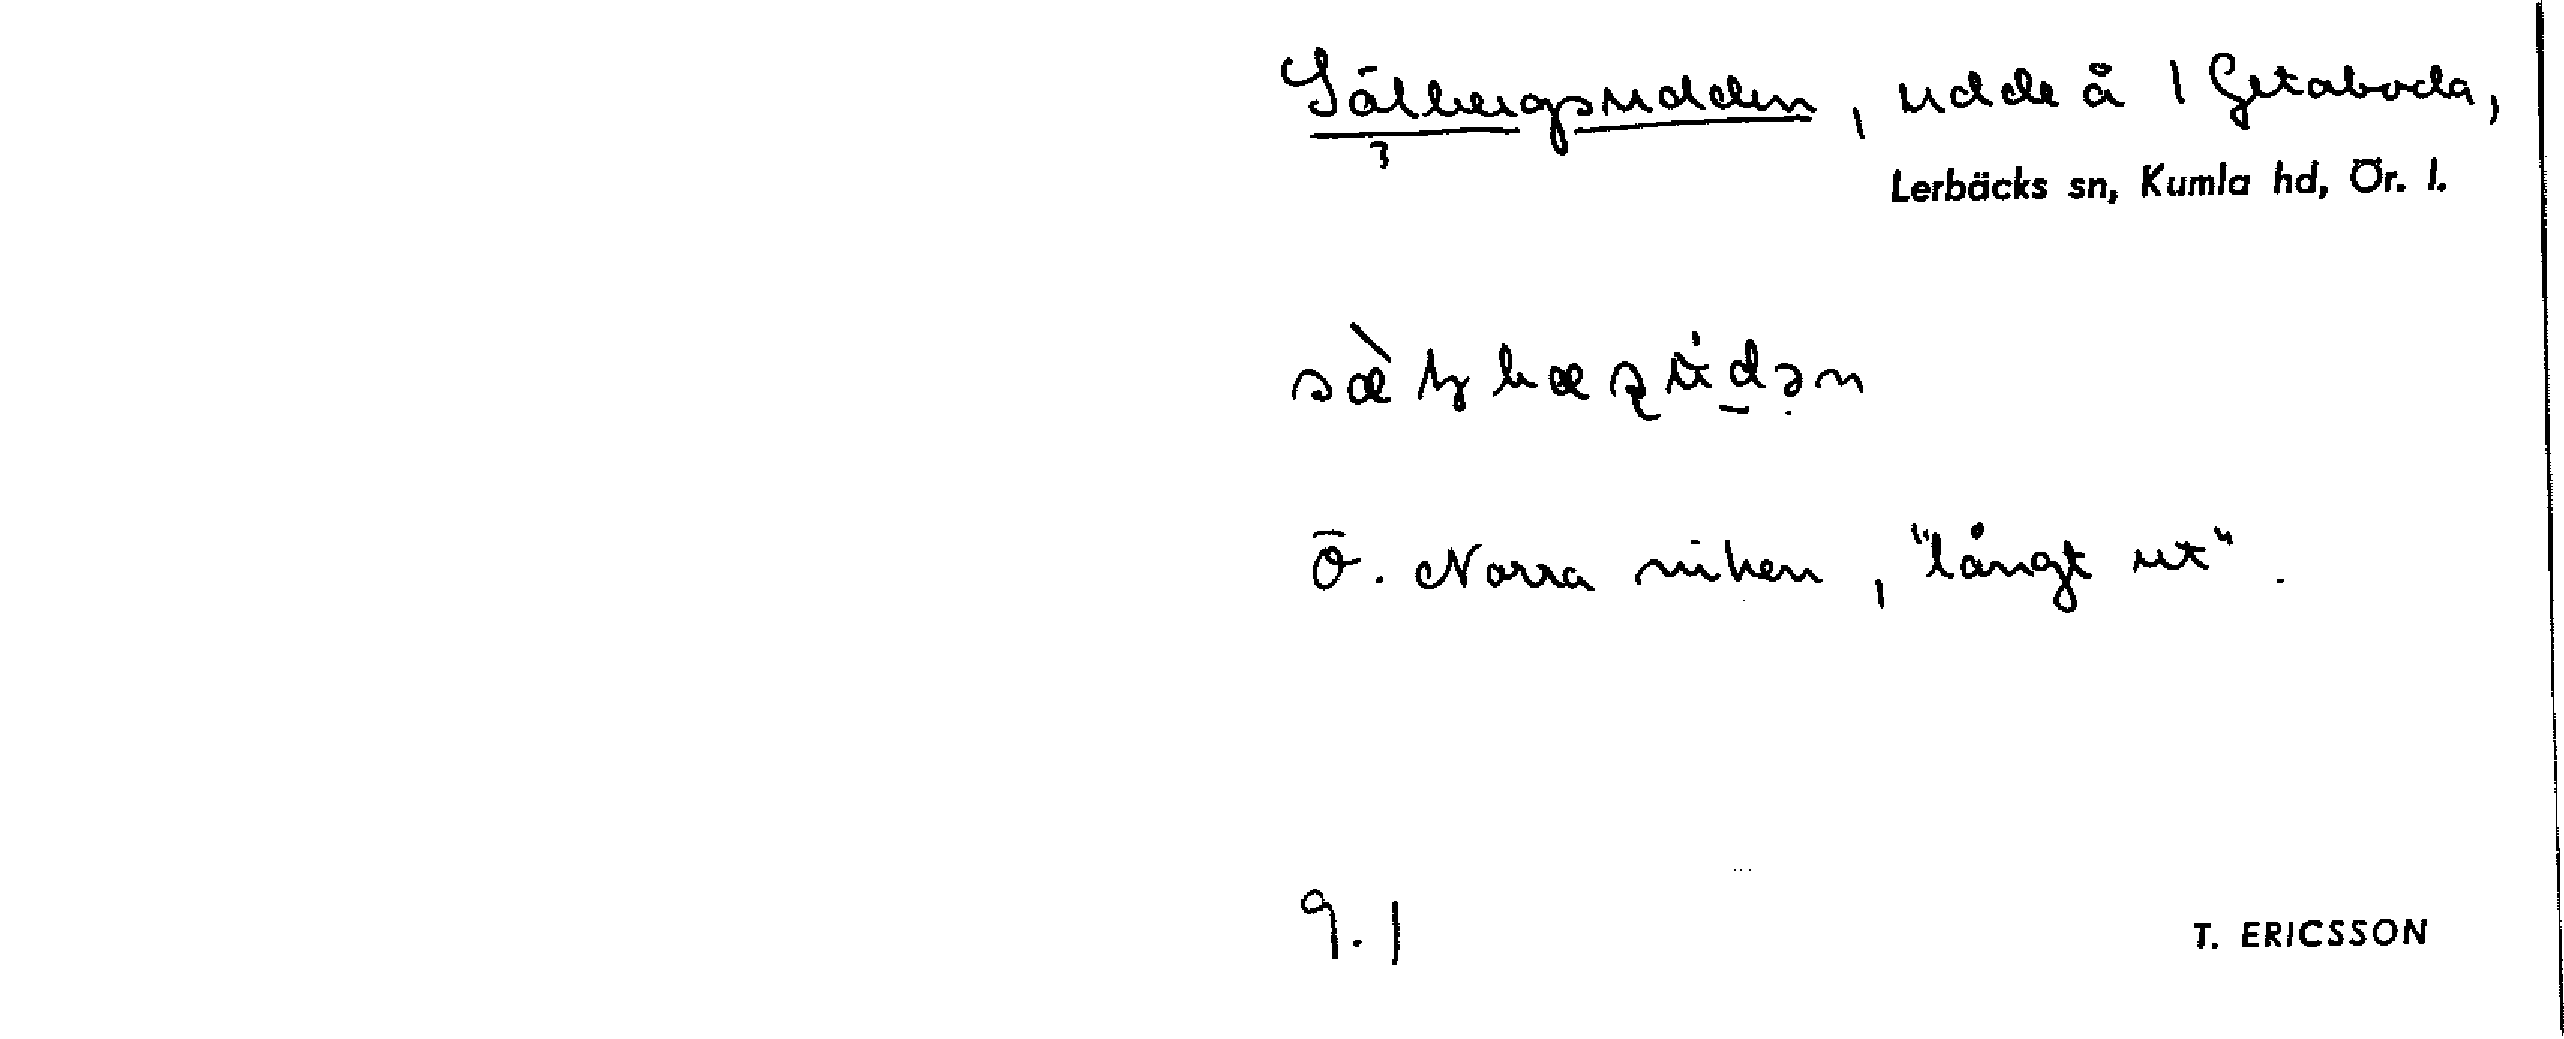 Sälbergsudden, udde å 1 Getaboda,
Lerbäcks sn, Kumla hd, Ör. l.
Ö. Norra viken, "långt ut".
9.1
T. ERICSSON